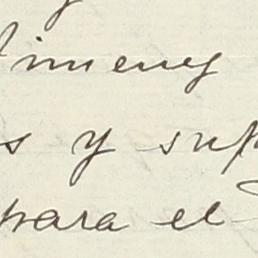 Jimeney
s y sup
para el